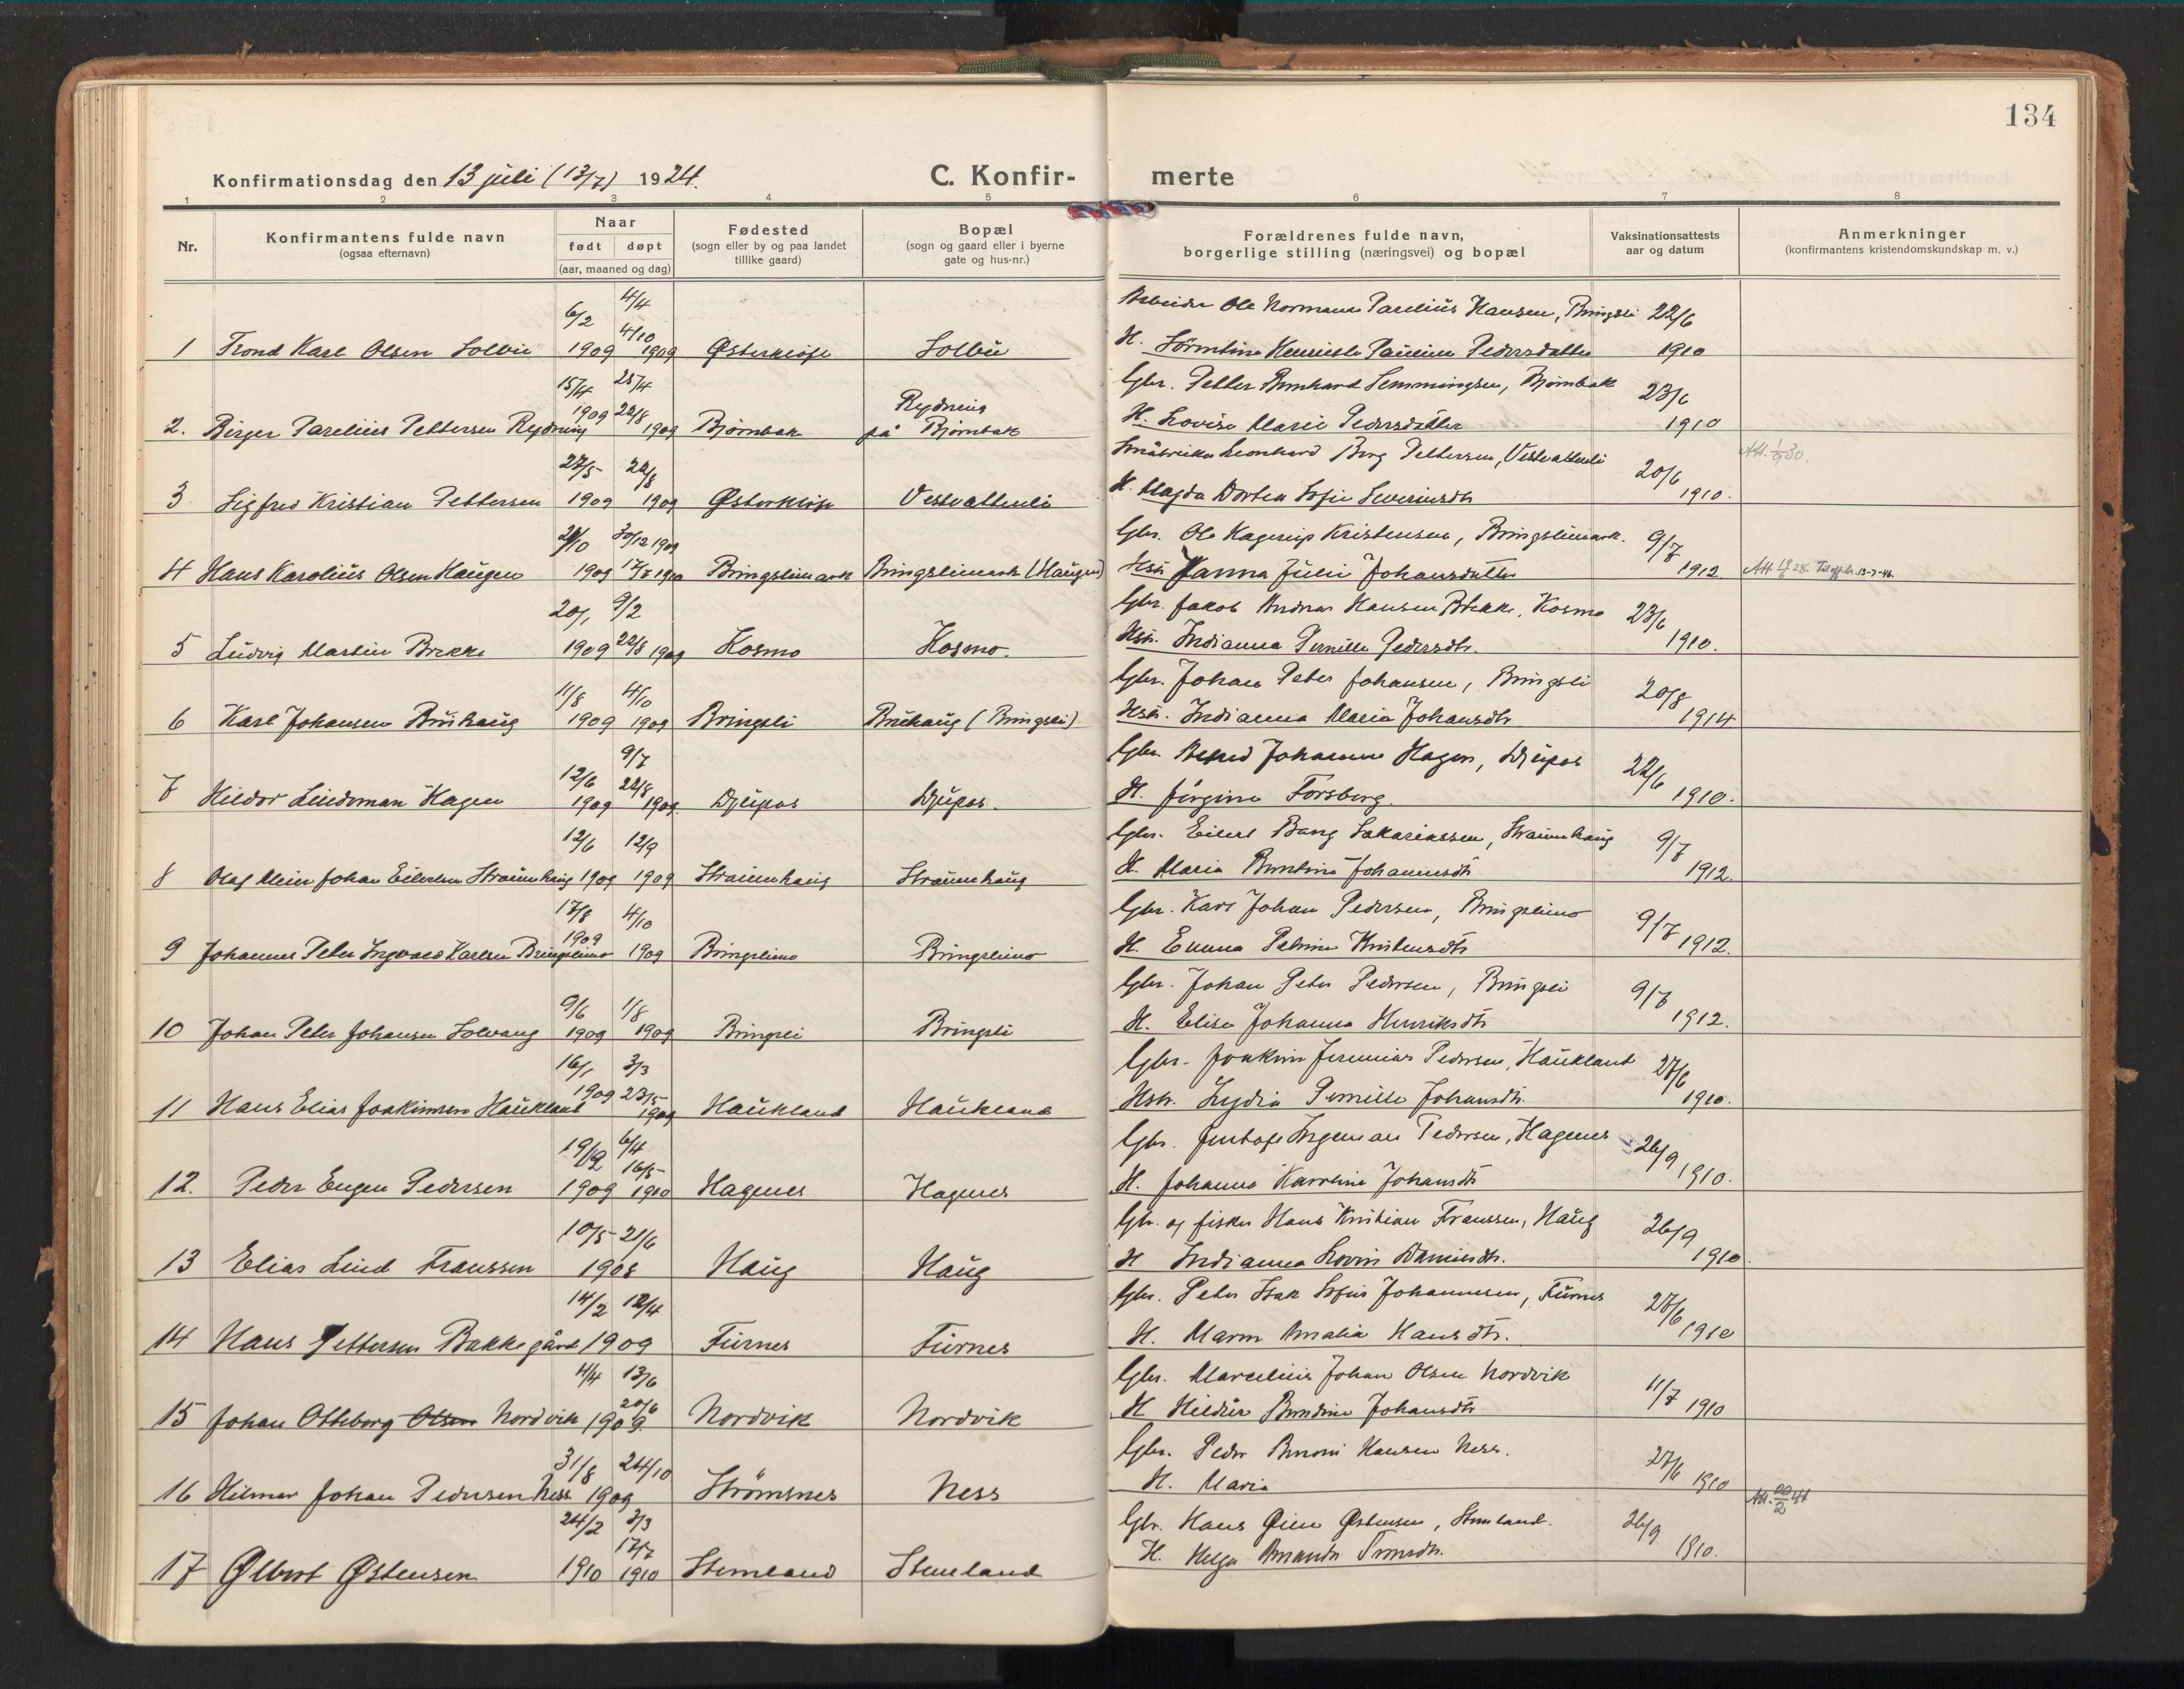 134
Konfirmationsdag den 13 juli (13/7) 1924.
C. Konfir-
merte
1 2 3 4 5 6 7 8
Nr.
Konfirmantens fulde navn
(ogsaa efternavn)
Naar
født døpt
(aar, maaned og dag)
Fødested
(sogn eller by og paa landet
tillike gaard)
Bopæl
(sogn og gaard eller i byerne
gate og hus-nr.)
Forældrenes fulde navn,
borgerlige stilling (næringsvei) og bopæl
Vaksinationsattests
aar og datum
Anmerkninger
(konfirmantens kristendomskundskap m. v.)
6/2 4/4 4/10 Arbeider Ole Normann Parelius Hansen, Bringsli 22/6
1 Trond Karl Olsen Solbu 1909 1909 Østerkløft Solbu H. Pauline Pedersdatter 1910
15/4 25/4 Gbr. Petter Bernhard Lemmingsen, Bjørnbak 23/6
2. Birger Parelius Pettersen Reydning 1909 22/8 1909 Bjørnbak på Bjørnbak H. Lovise Marie Pedersdatter 1910
27/5 22/8 Småbruker Leonhard Berg Pettersen, Vestvatteli 20/6 Att. 1/9 30.
3 Sigfred Kristian Pettersen 1909 1909 Østerkløft Vestvattenli H. Magda Dortea Sofie Severinsdtr 1910.
30/12 1909 Gbr. Ole Kagerup Kristensen, Bringslimark. 9/7
4 Hans Karolius Olsen Haugen 1909 17/7 1910 Bringslimark Bringslimark (Haugen) Hstr. Janna Julie Johansdatter 1912. Att. 28.
20/1 9/2 Gbr. Jakob Andreas Hansen Brekke, Kosmo 23/6
5 Ludvig Martin Brekke 1909 22/8 1909 Kosmo Kosmo. Hstr. Indianna Pernille Pedersdtr. 1910.
11/8 4/10 Gbr. Johan Peter Johansen, Bringsli 20/8
6 Karl Johansen Bruhaug 1909 1909 Bringsli Bruhaug (Bringsli) Hstr. Indianna Maria Johansdtr 1914
12/6 9/7 22/8 Gbr. Johannes Hagen, Djupos 22/6
7 Hildor Lindeman Hagen 1909 1909. Djupos Djupos. H. Jørgine Forsberg. 1910.
12/6 12/9 Gbr. Eilert Bang Sakariassen, Straumhaug 9/7
8 Olaf Meier Johan Eilertsen Straumhaug 1909 1909 Straumhaug Straumhaug H. Maria Berntine Johannesdtr 1912.
17/8 4/10 Gbr. Karl Johan Pedersen, Bringslimo 9/7
9 Johannes Peter Ingvald Karlsen Bringslimo 1909 1909 Bringslimo Bringslimo H. Emma Petrine Kristensdtr 1912.
9/6 1/8 Gbr. Johan Peter Pedersen, Bringsli 9/7
10 Johan Peter Johansen Solvang 1909 1909 Bringsli Bringsli H. Elise Johanna Henriksdtr 1912.
16/1 3/3 Gbr. Joakim Jeremias Pedersen, Haukland 27/6
11 Hans Elias Joakimsen Haukland 1909 23/5 1909 Haukland Haukland Hstr. Lydia Pernille Johansdtr. 1910.
19/12 6/4 16/5 Gbr. Jentoft Ingeman Pedersen, Hagenes 26/9
12. Peder Eugen Pedersen 1909 1910 Hagenes Hagenes H. Johanna Karoline Johansdtr 1910.
10/5 21/6 Gbr. og fisker Hans Kristian Franssen, Haug 26/9
13 Elias Lind Franssen 1908 Haug Haug H Indianna Lovise Danielsdtr. 1910.
14/2 12/4 Gbr. Peter Isak Sofus Johannesen, Furnes 27/6
14 Hans Pettersen Bakkegård 1909 Furnes Furnes H. Maren Amalia Hansdtr. 1910
4/4 13/6 Gbr. Marcelius Johan Olsen Nordvik 11/7
15 Johan Otteborg Olsen Nordvik 1909. 20/6 Nordvik Nordvik H Hildur Berndine Johansdtr 1910
31/8 24/10 Gbr. Peder Benoni Hansen Ness. 27/6
16 Hilmar Johan Pedersen Ness 1909 Strömsnes Ness H. Maria 1910 Att. 20/2 41
24/2 3/3 17/7 Gbr. Hans Østensen, Stemland. 26/9
17 Ølbert Østensen 1910 1910 Stemland Stemland H. Helga Amanda 1910.